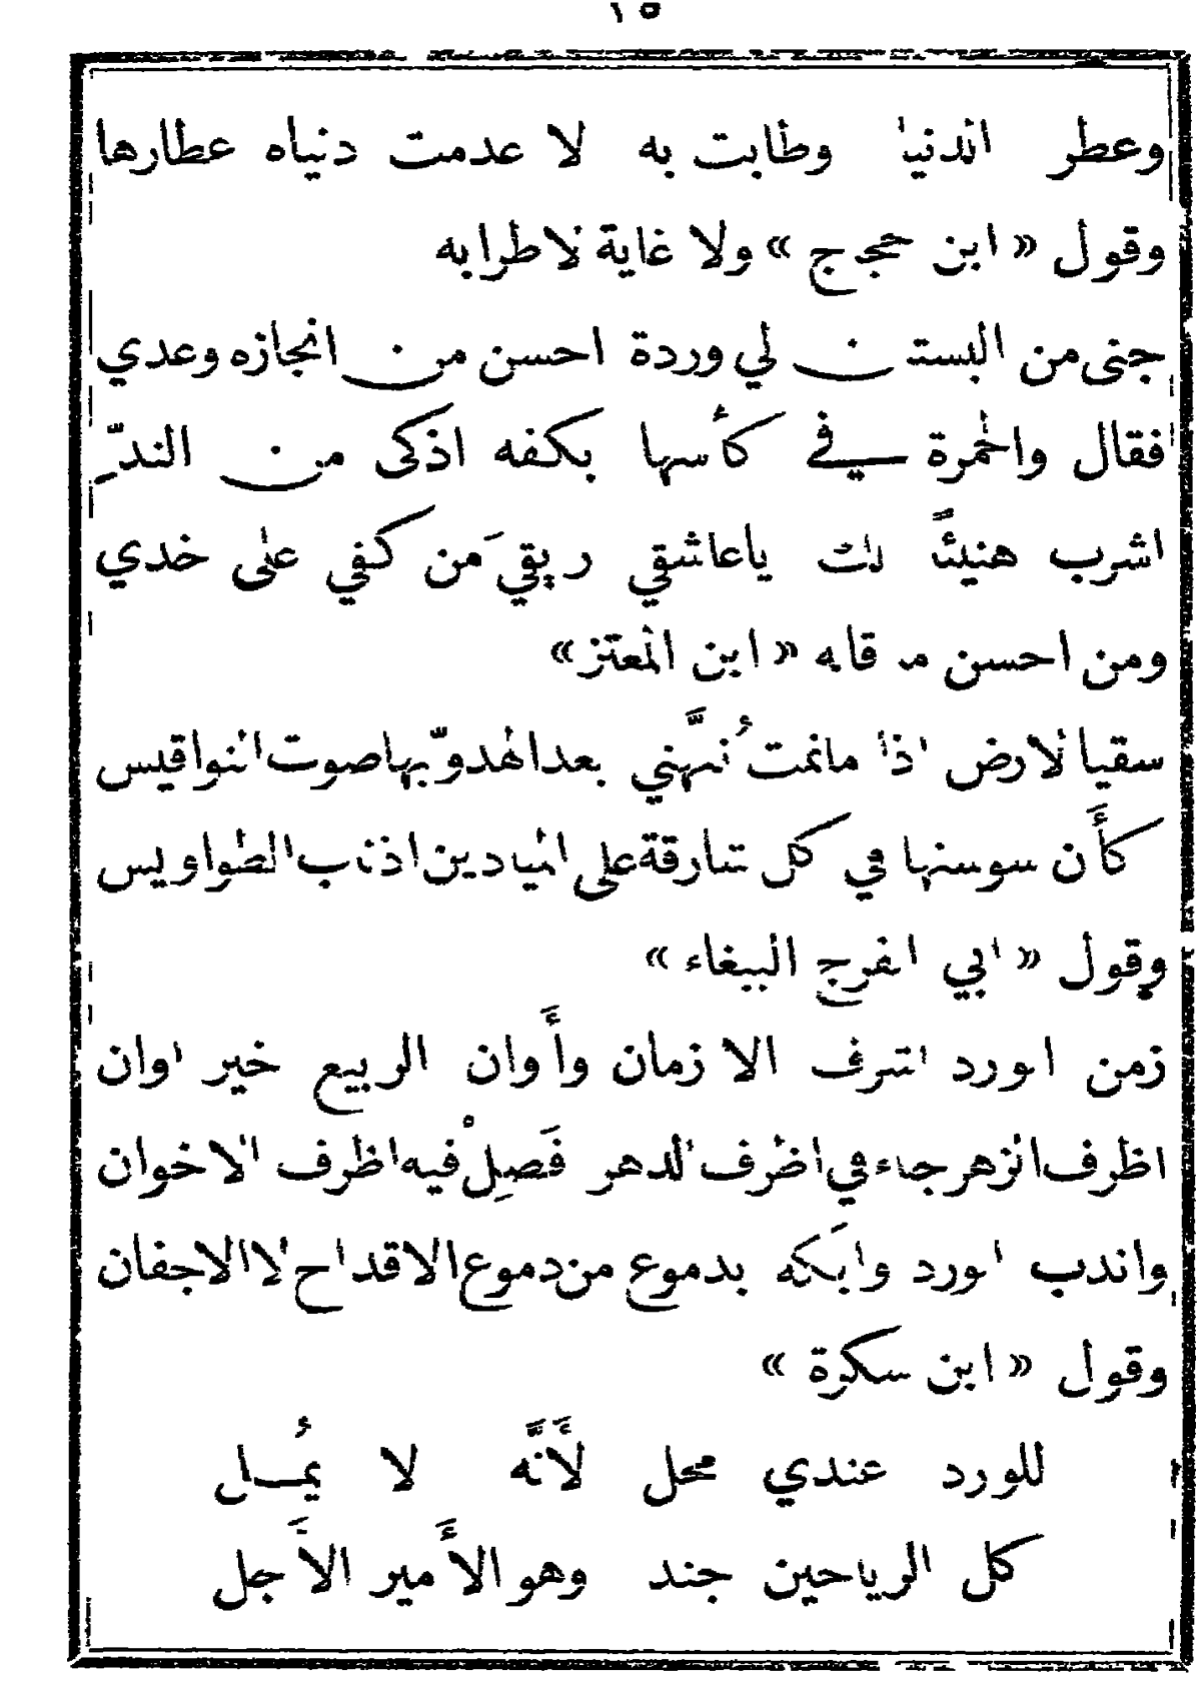 ١٥
وعطر الدنيا وطابت به لا عدمت دنياه عطارها
وقول « ابن حجاج » ولا غاية لاطرابه
جنى من البستان لي وردة احسن من انجازه وعدي
فقال والخمرة في كأسها بكفه اذكى من الندِّ
اشرب هنيئًا لك ياعاشقي ريقيَ من كفي على خدي
ومن احسن ما قاله « ابن المعتز»
سقيا لارض اذا مانمت نُبَّهني بعد الهدوّ بها صوت النواقيس
كأَن سوسنها في كل شارقة على الميادين اذناب الطواويس
وقول « ابي الفرج الببغاء »
زمن الورد اشرف الازمان وأَوان الربيع خير اوان
اظرف الزهر جاء في اظرف الدهر فَصِلْ فيه اظرف الاخوان
واندب الورد وابَكه بدموع من دموع الاقداح لا الاجفان
وقول « ابن سكرة »
للورد عندي محل لأَنَّه لا يُمـل
كل الرياحين جند وهو الأَمير الأَجل